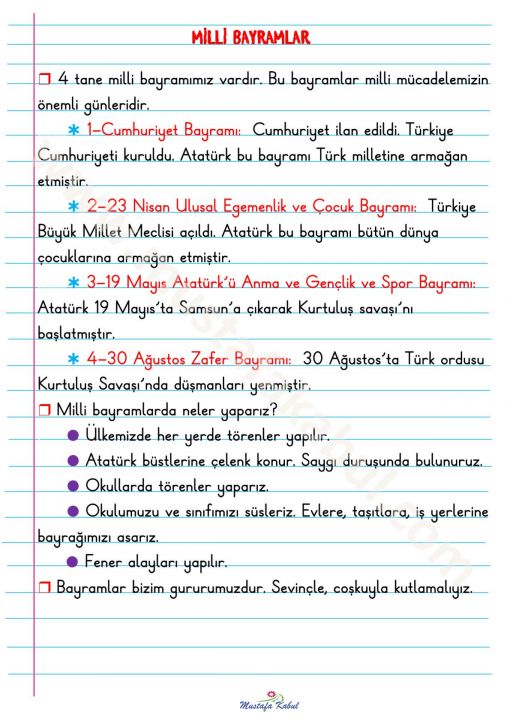 MİLLİ BAYRAMLAR
❒ 4 tane milli bayramımız vardır. Bu bayramlar milli mücadelemizin
önemli günleridir.
* 1-Cumhuriyet Bayramı: Cumhuriyet ilan edildi. Türkiye
Cumhuriyeti kuruldu. Atatürk bu bayramı Türk milletine armağan
etmiştir.
* 2-23 Nisan Ulusal Egemenlik ve Çocuk Bayramı: Türkiye
Büyük Millet Meclisi açıldı. Atatürk bu bayramı bütün dünya
çocuklarına armağan etmiştir.
* 3-19 Mayıs Atatürk'ü Anma ve Gençlik ve Spor Bayramı:
Atatürk 19 Mayıs'ta Samsun'a çıkarak Kurtuluş savaşı'nı
başlatmıştır.
* 4-30 Ağustos Zafer Bayramı: 30 Ağustos'ta Türk ordusu
Kurtuluş Savaşı'nda düşmanları yenmiştir.
❒ Milli bayramlarda neler yaparız?
● Ülkemizde her yerde törenler yapılır.
● Atatürk büstlerine çelenk konur. Saygı duruşunda bulunuruz.
● Okullarda törenler yaparız.
● Okulumuzu ve sınıfımızı süsleriz. Evlere, taşıtlara, iş yerlerine
bayrağımızı asarız.
● Fener alayları yapılır.
❒ Bayramlar bizim gururumuzdur. Sevinçle, coşkuyla kutlamalıyız.
www.mustafakabul.com
Mustafa Kabul